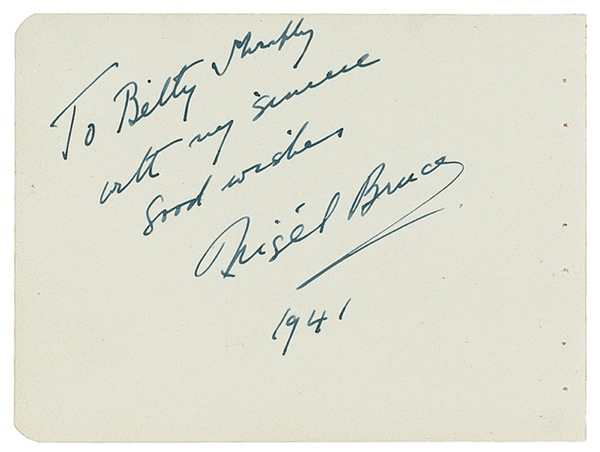 To Betty
with my sincere
good wishes
Nigel Bruce
1941